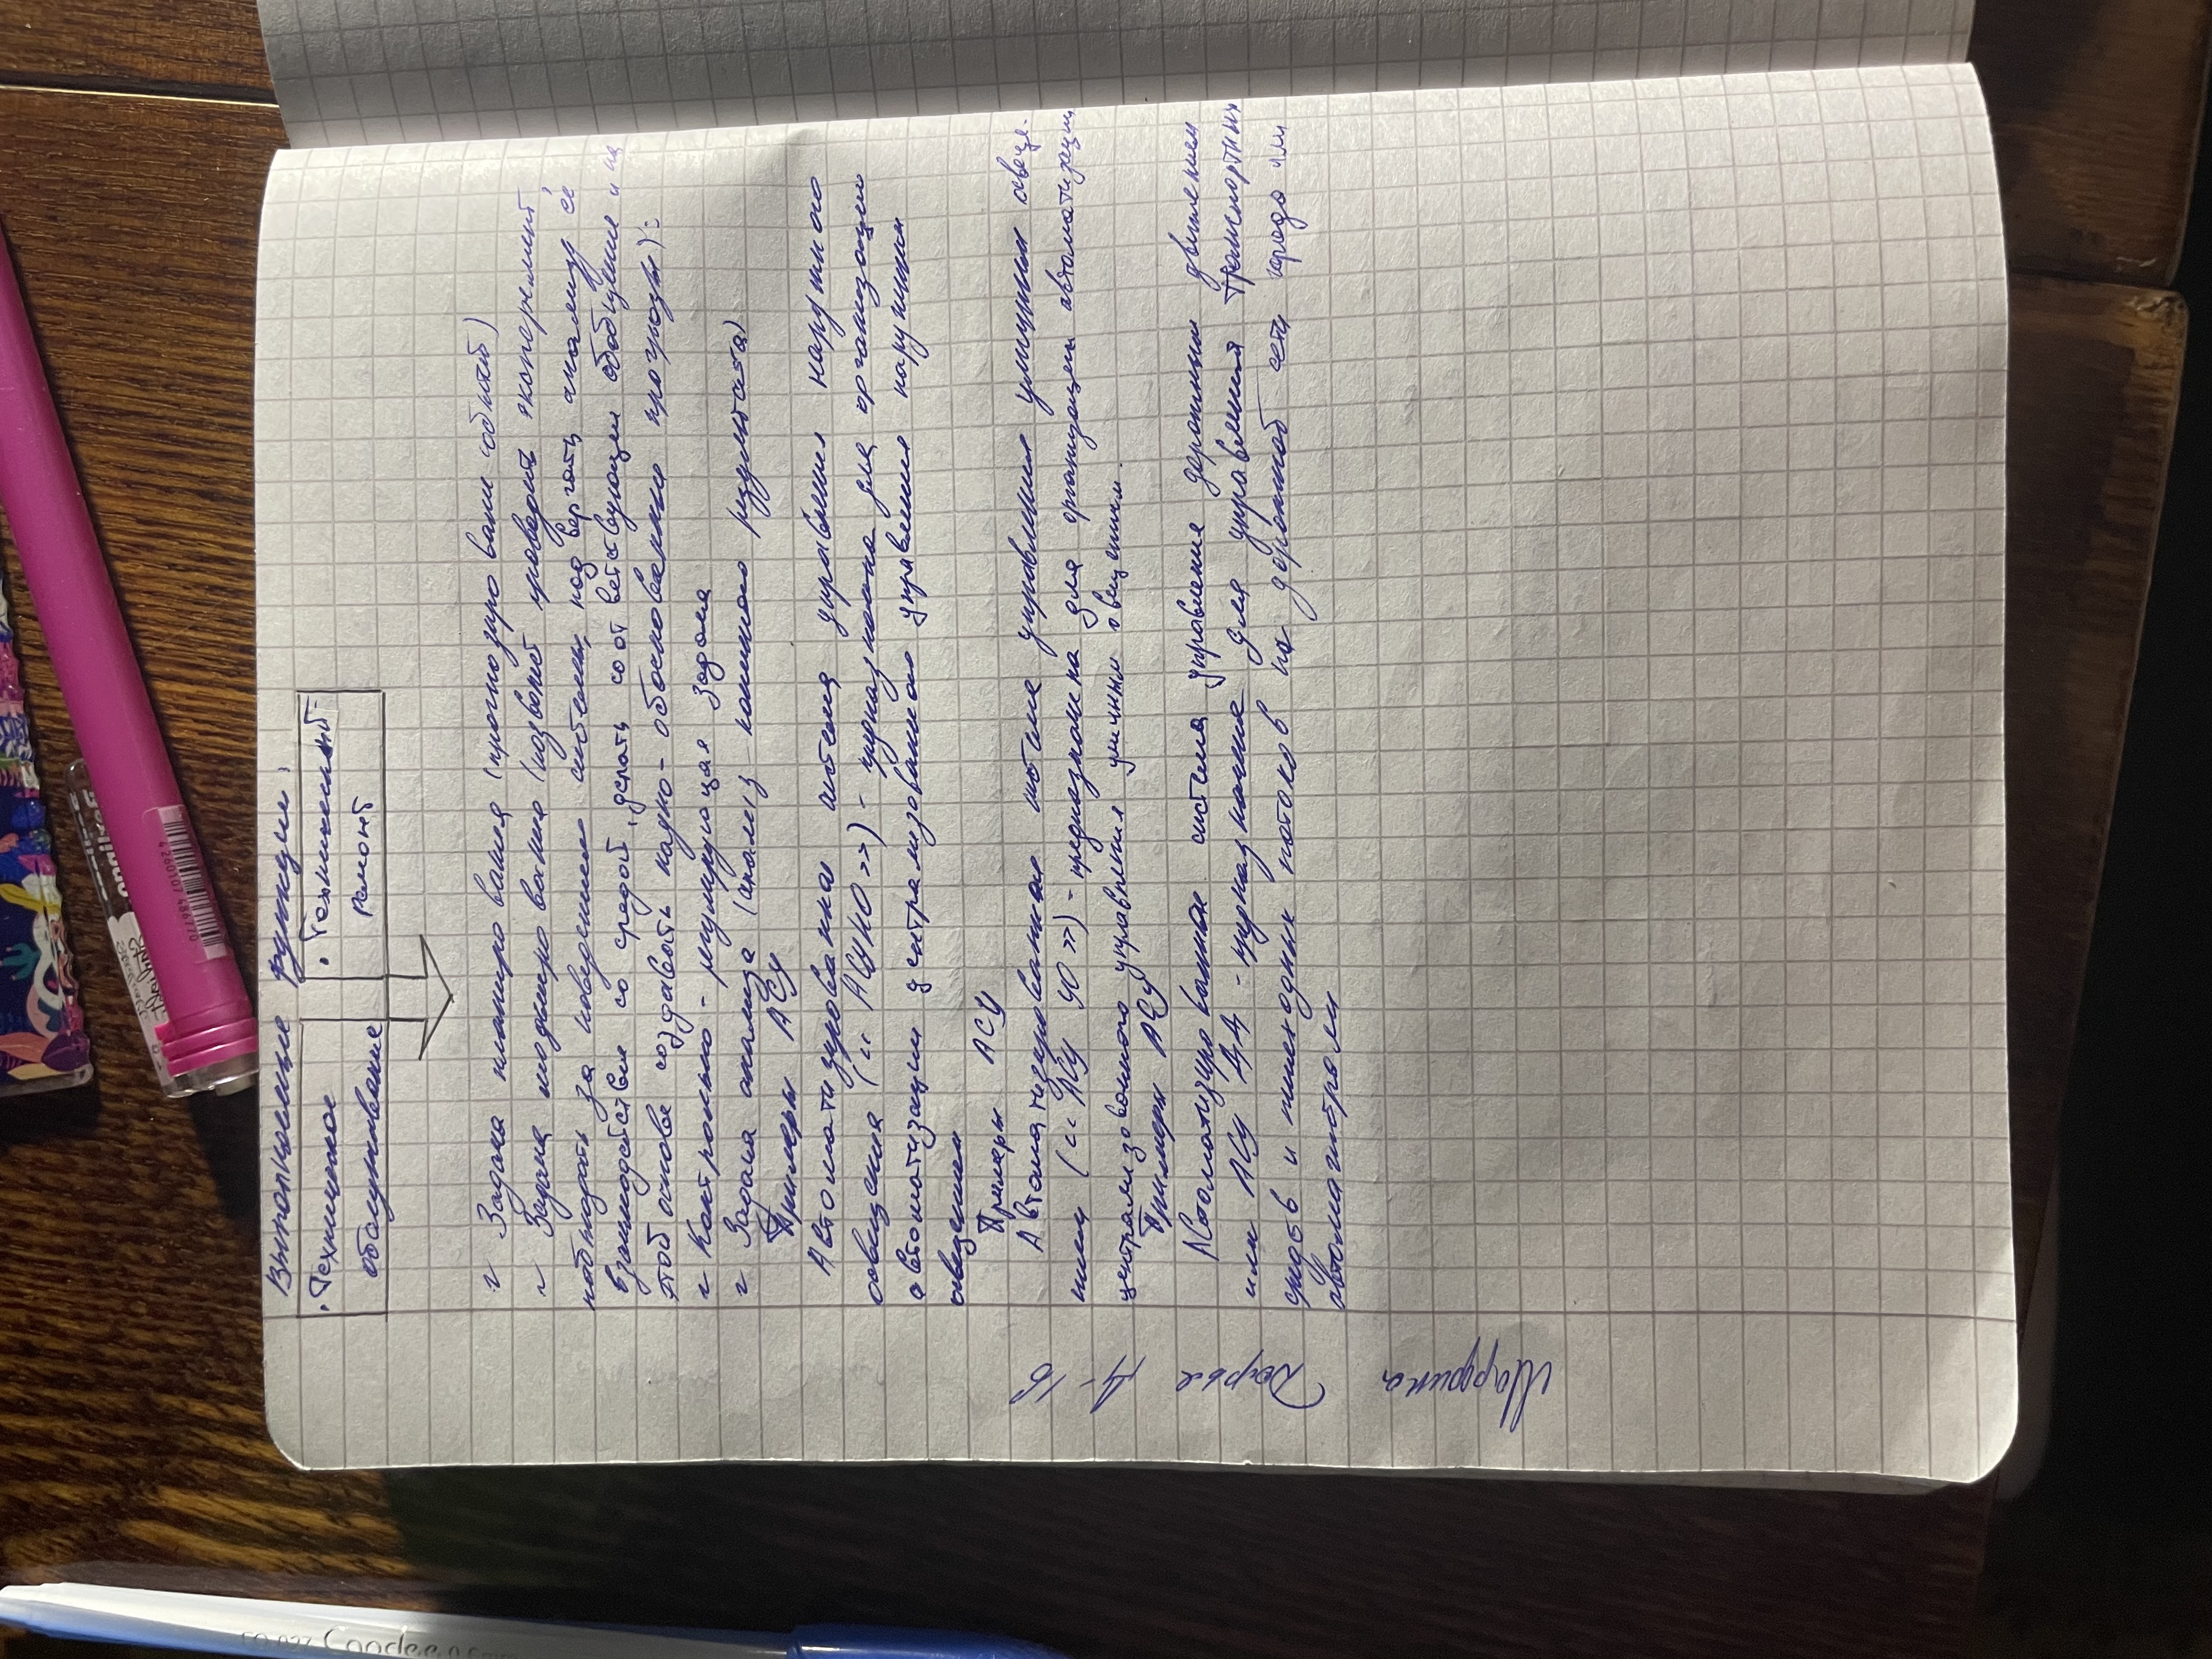 Выполняемые функции:
• Техническое обслуживание
• Технический ремонт
~ Задача планирования (прогнозирование событий)
~ Задача моделирования (позволяет проводить эксперимент
наблюдать за поведением системы, подвергать анализу её
взаимодействие со средой, делать соответствующие обобщение и на
этой основе создавать научно-обоснованно прогнозы):
~ Контрольно-регулирующая задача
~ Задача анализа (анализ конечного результата)
Примеры АСУ
Автоматизированная система управления наружного
освещения («АСУНО») - предназначена для организации
автоматизации централизованного управления наружным
освещением
Примеры АСУ
Автоматизированная система управления уличным освеще-
нием («АСУ УО») - предназначена для организации автоматизации
централизованного управления уличным освещением.
Примеры АСУ
Автоматизированная система управление дорожным движением
или АСУ ДД - предназначение для управления транспортных
средств и пешеходных потоков на дорожной сети города или
автомагистрали
Дарья Д-16